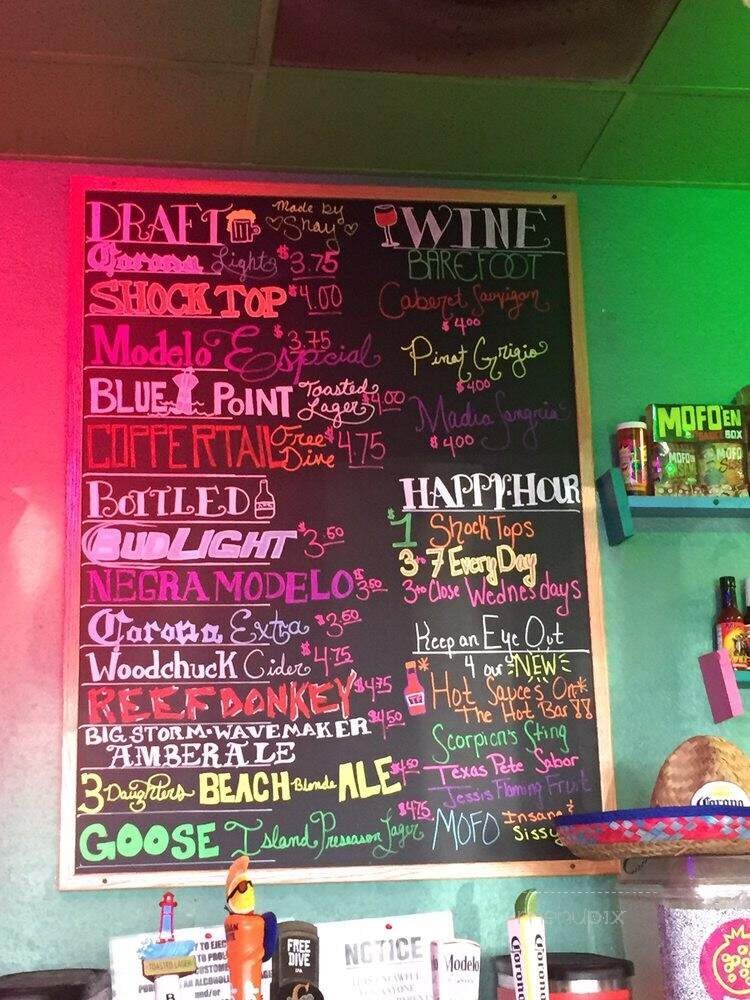 DRAFT
Made By
Shay
Corona Lights $3.75
SHOCK TOP $4.00
Modelo Especial $3.75
BLUE POINT Toasted Lager $4.00
COPPERTAIL Free Dive 4.75
BOTTLED
BUD LIGHT $3.50
NEGRA MODELO $3.50
Corona Extra $3.50
Woodchuck Cider $4.75
REEF DONKEY $4.75
BIG STORM·WAVEMAKER $4.50
AMBER ALE
3 Daughters BEACH Blonde ALE $4.50
GOOSE Island Preseason Lager $4.75
WINE
BAREFOOT
Cabernet Sauvigon
$4.00
Pinot Grigio
$4.00
Madia Sangria
$4.00
HAPPY·HOUR
$1 Shock Tops
3 to 7 Every Day
3 to Close Wednesdays
Keep an Eye Out
4 our NEW
Hot Sauce's On
The Hot Bar!!
Scorpion's Sting
Texas Pete Sabor
Jessis Flaming Fruit
MOFO Insane &
Sissy
MOFO'EN
BOX
MOFO
Corona
TOASTED LAGER
FREE
DIVE
IPA
NOTICE
Modelo
Corona
menupix